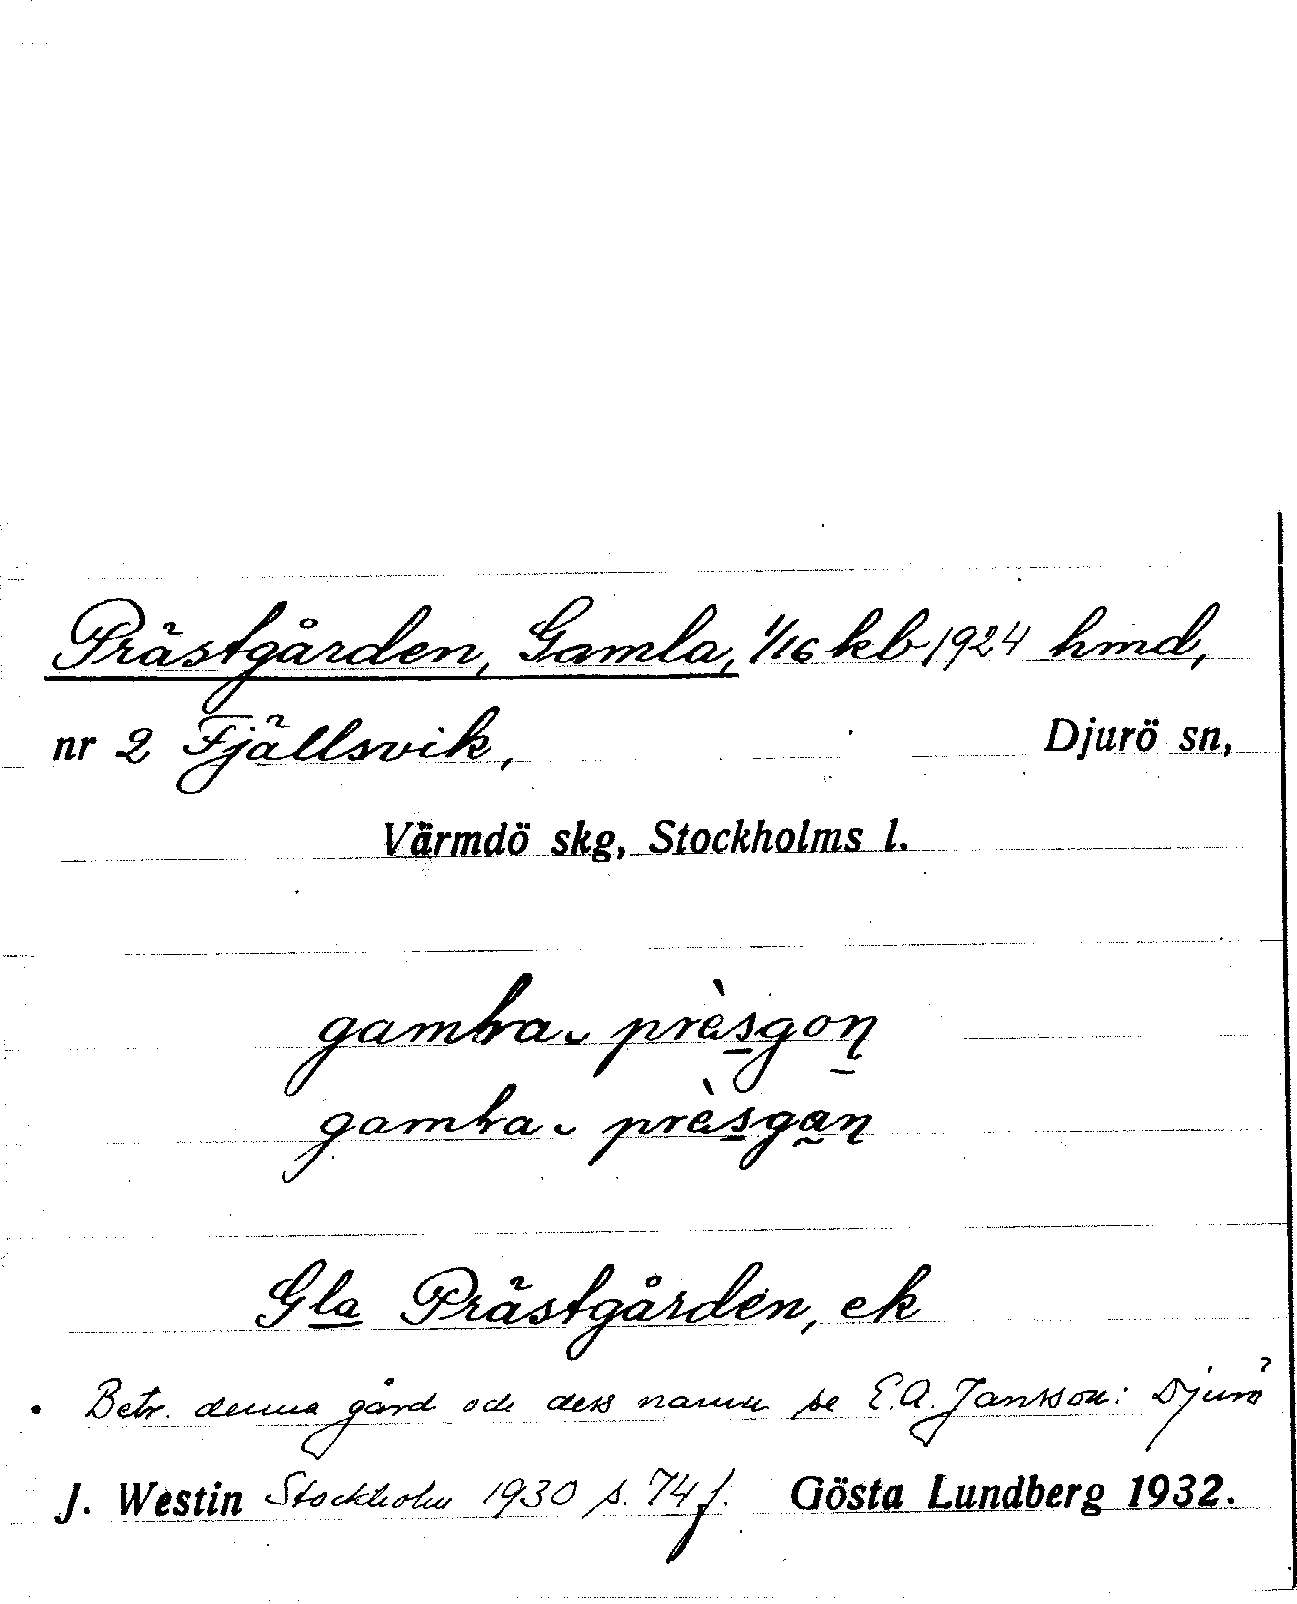 Prästgården, Gamla, 1/16 kb 1924 hmd,
nr 2 Fjällsvik, Djurö sn,
Värmdö skg, Stockholms l.
Gla Prästgården, ek
Betr. denna gård och dess namn se E.A. Jansson: Djurö
J. Westin Stockholm 1930 s. 74 f. Gösta Lundberg 1932.